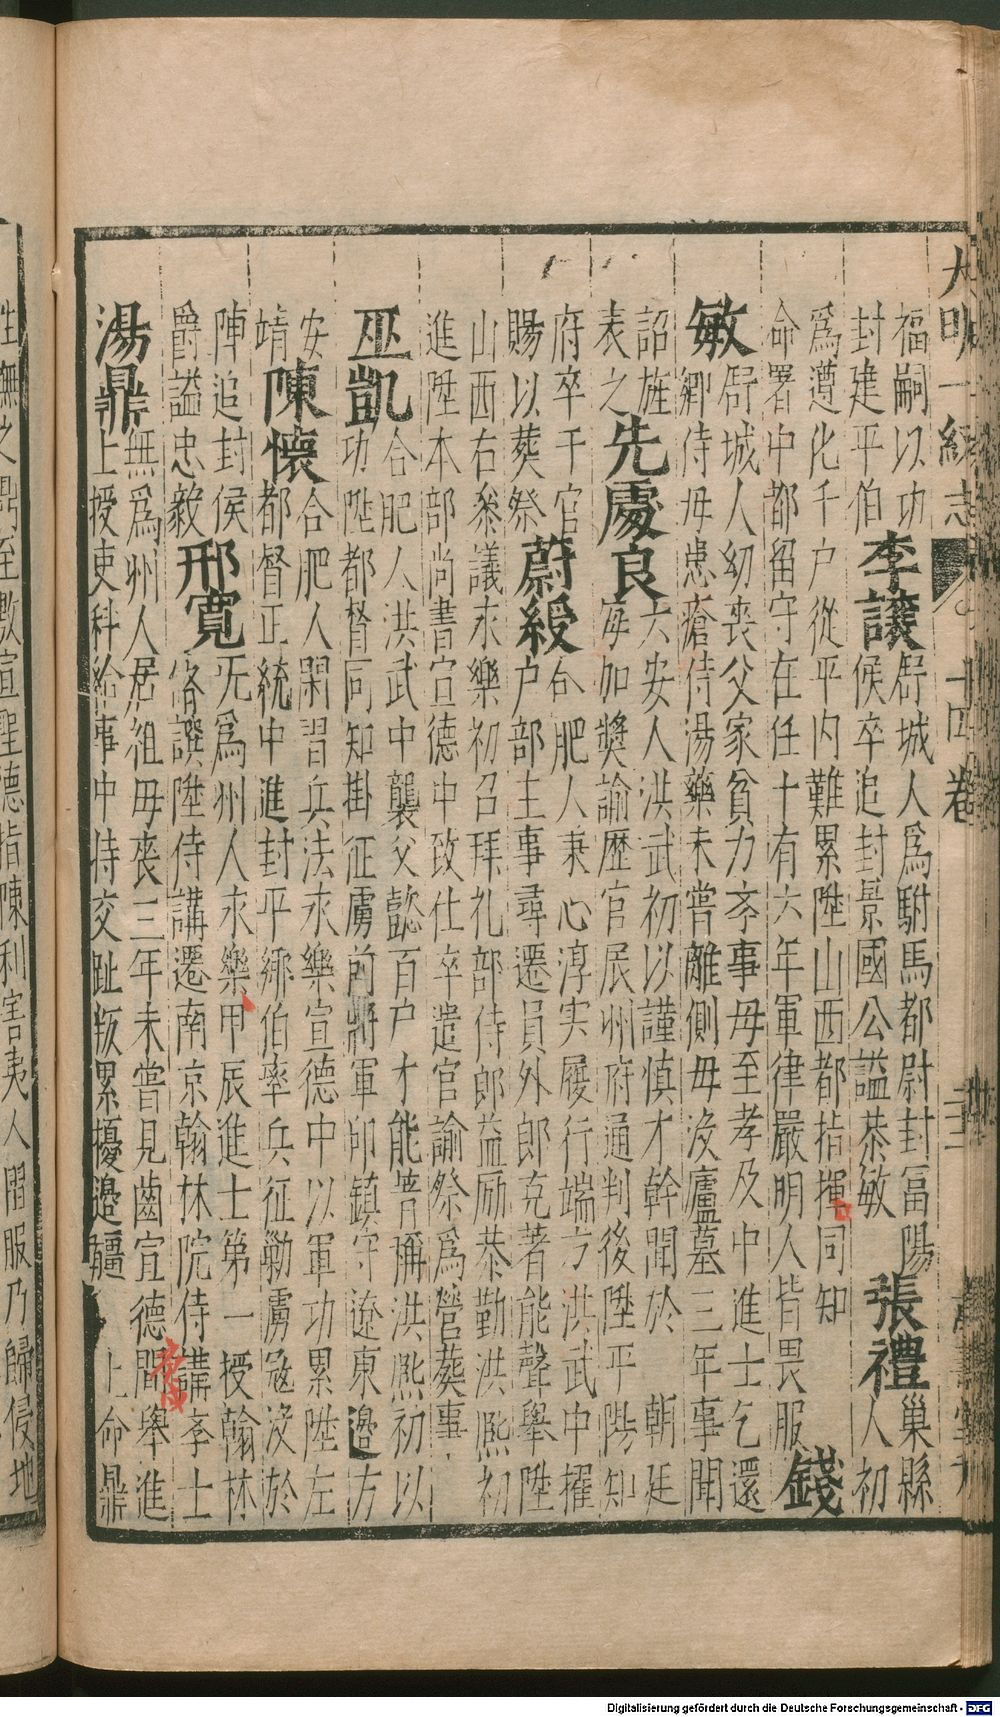 大明一統志 十四卷
福嗣以功
封建平伯李讓舒城人爲駙馬都尉封富陽侯卒追封景國公謚恭敏張禮巢縣人初
爲遵化千户從平内難累陞山西都指揮同知
命署中都留守在任十有六年軍律嚴明人皆畏服錢
敏舒城人幼喪父家貧力孝事母至孝及中進士乞還
鄉侍母患瘡侍湯藥未嘗離側母没廬墓三年事聞
詔旌
表之先處良六安人洪武初以謹慎才幹聞於 朝廷
每加獎諭歷官辰州府通判後陞平陽知
府卒于官
賜以葬祭蔚綬合肥人秉心淳实履行端方洪武中擢
户部主事尋遷員外郎克著能聲舉陞
山西右叅議永樂初召拜礼部侍郎益励恭勤洪熈初
進陞本部尚書宣德中致仕卒遣官諭祭爲營葬事
巫凱合肥人洪武中襲父懿百户才能著稱洪熈初以
功陞都督同知掛征虜前將軍印鎮守遼東邊方
安
靖陳懷合肥人閑習兵法永樂宣德中以軍功累陞左
都督正統中進封平鄉伯率兵征勦虜冦没於
陣追封侯
爵謚忠毅邢寬无爲州人永樂甲辰進士第一授翰林
脩譔陞侍講遷南京翰林院侍講李士
湯鼎無爲州人居祖母喪三年未嘗見齒宣德間舉進
士授吏科給事中時交趾叛累擾邊疆 上命鼎
性撫之鼎至敷宣聖德指陳利害夷人間服乃歸侵地
Digitalisierung gefördert durch die Deutsche Forschungsgemeinschaft - DFG